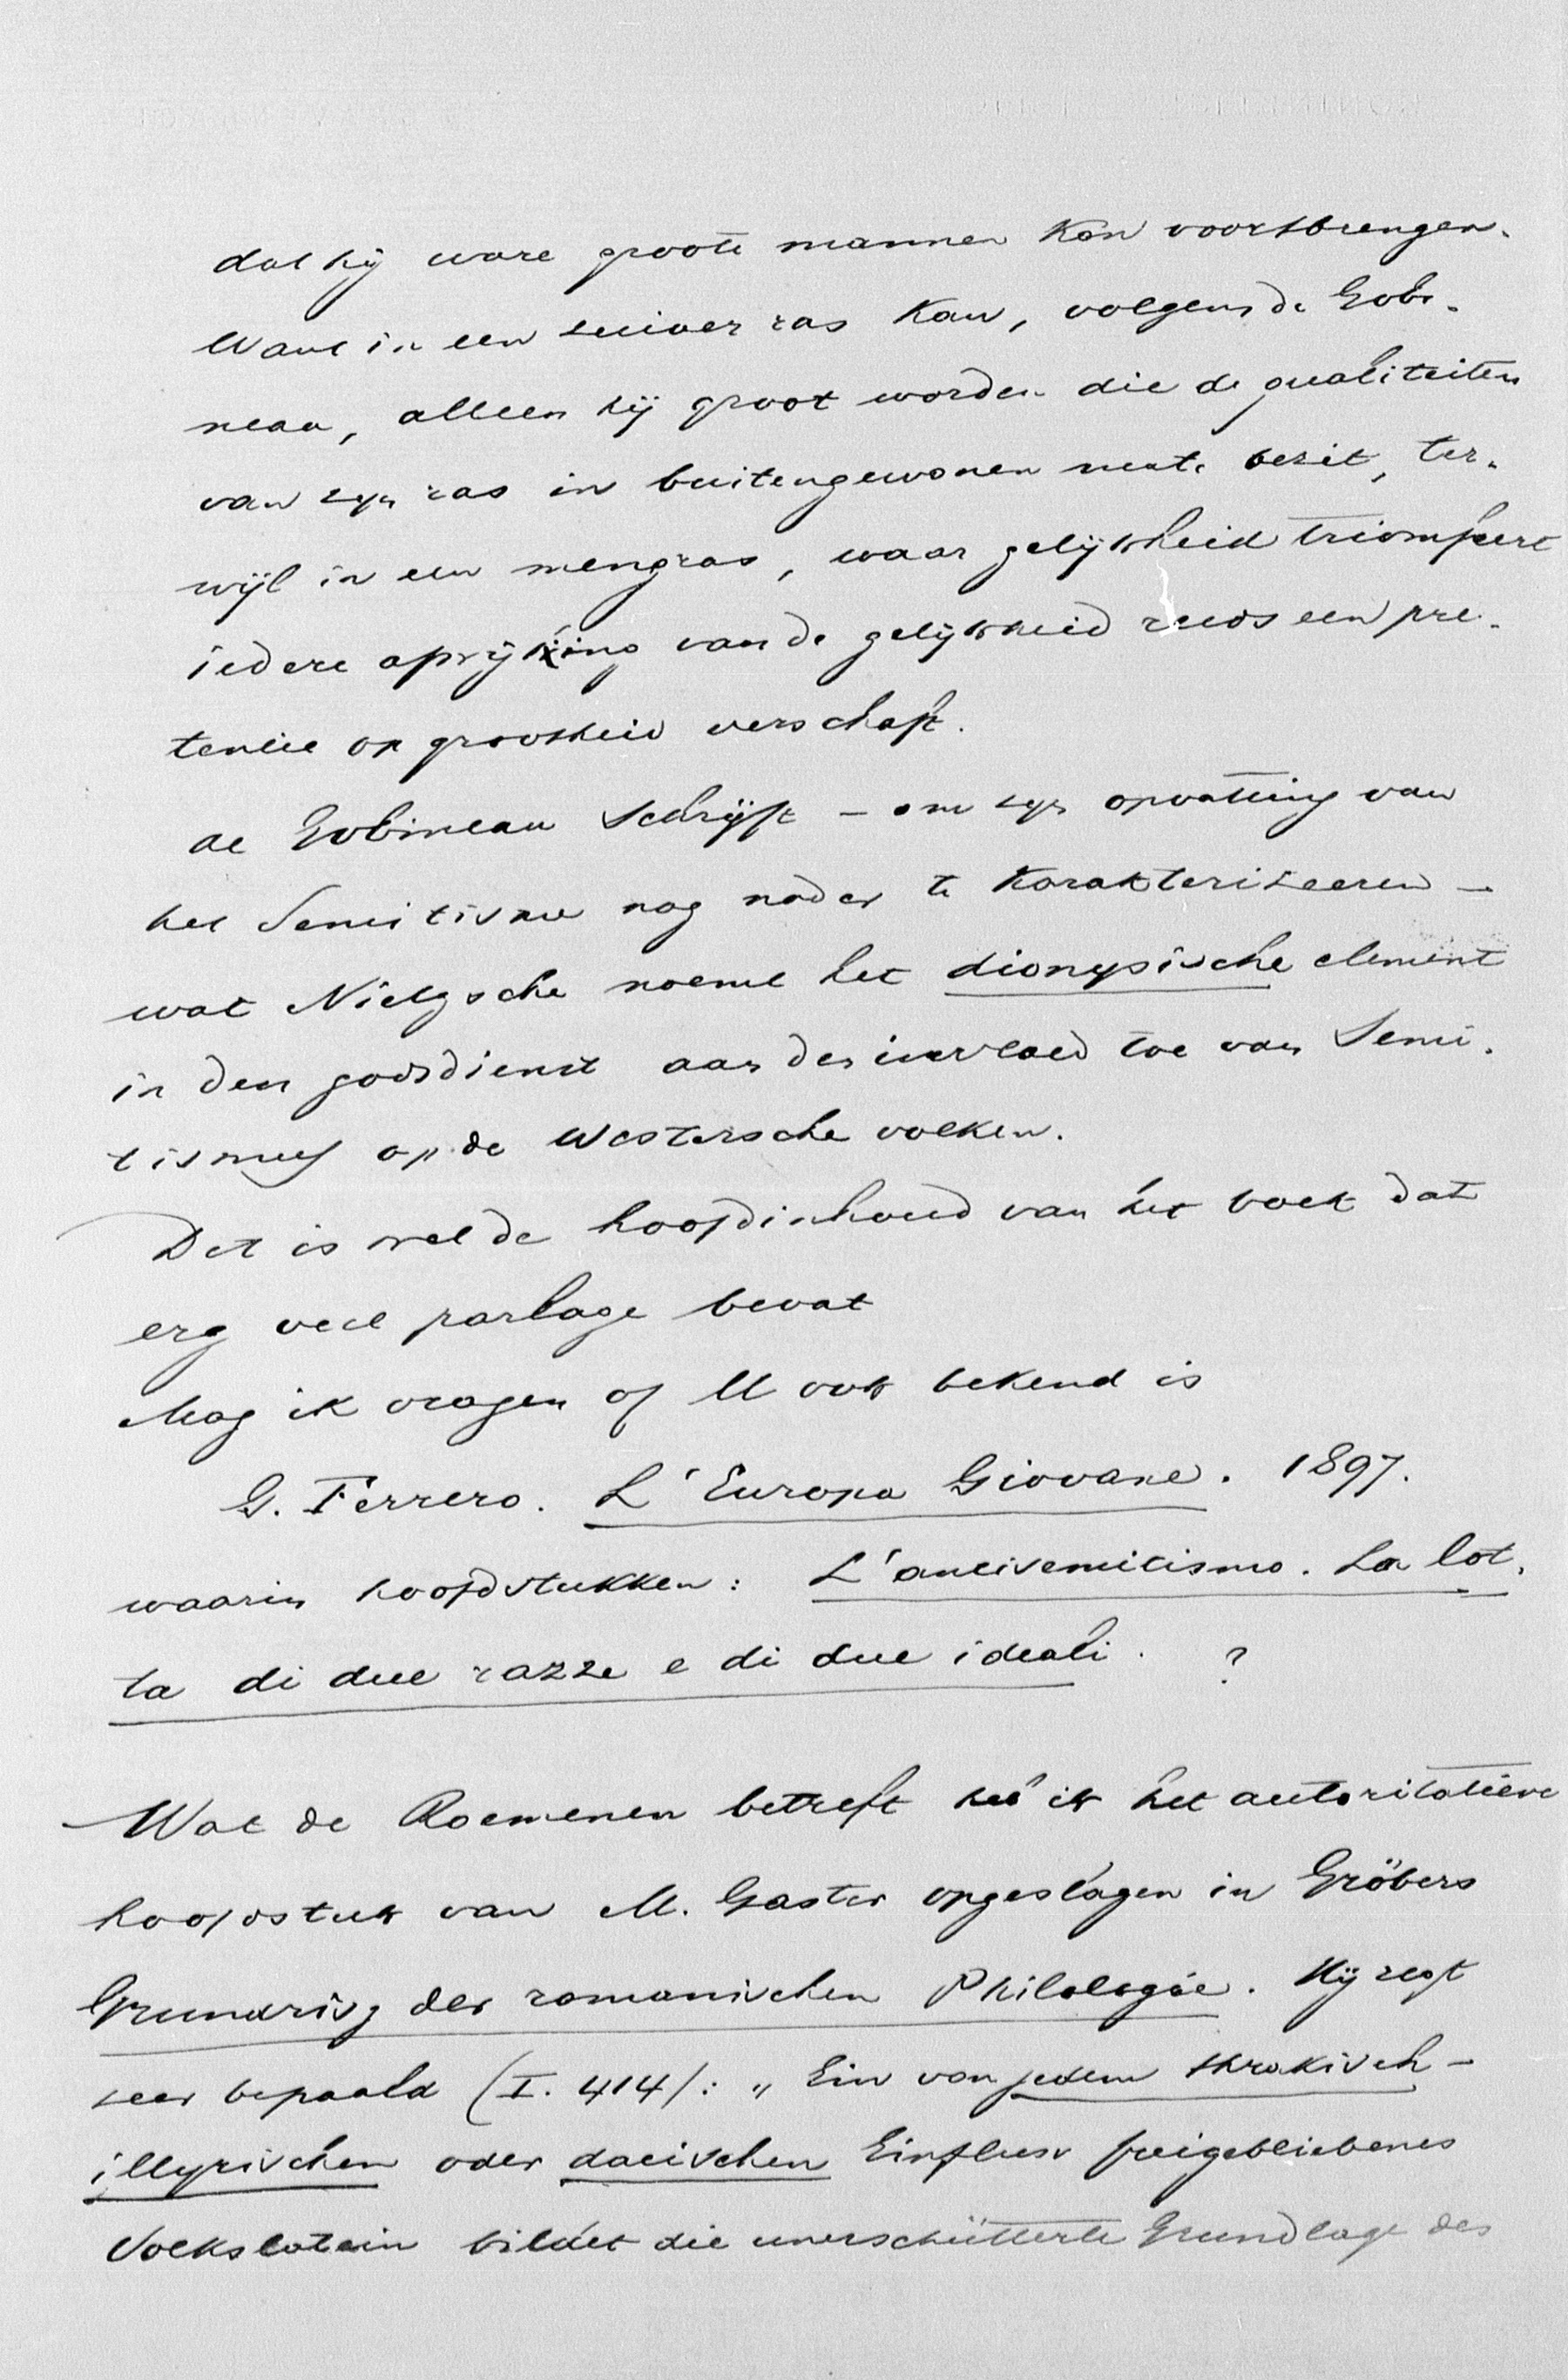 dat hij ware groote mannen kan voortbrengen.
Want in een zuiver ras kan, volgens de Gobi-
neau, alleen hij groot worden die de qualiteiten
van zijn ras in buitengewonen mate bezit, ter-
wijl in een mengras, waar gelijkheid triomfeert
iedere afwijking van de gelijkheid reeds een pre-
tentie op grootheid verschaft.
de Gobineau schrijft – om zijn opvatting van
het Semitisme nog nader te karakteriseeren –
wat Nietzsche noemt het dionysische element
in den godsdienst aan den invloed toe van Semi-
tismus op de Westersche volken.
Dit is wel de hoofdinhoud van het boek dat
erg veel parlage bevat
Mag ik vragen of U ook bekend is
G. Ferrero. L'Europa Giovane. 1897.
waarin hoofdstukken: L'antisemitismo. La lot-
ta di due razze e di due ideali. ?
Wat de Roemenen betreft heb ik het autoritatieve
hoofdstuk van M. Gaster opgeslagen in Gröbers
Grundrisz der romanischen Philologie. Hij zegt
zeer bepaald (I. 414): „Ein von jedem thrakisch-
illyrischen oder dacischen Einfluss freigebliebenes
Volkslatein bildet die unerschütterte Grundlage des